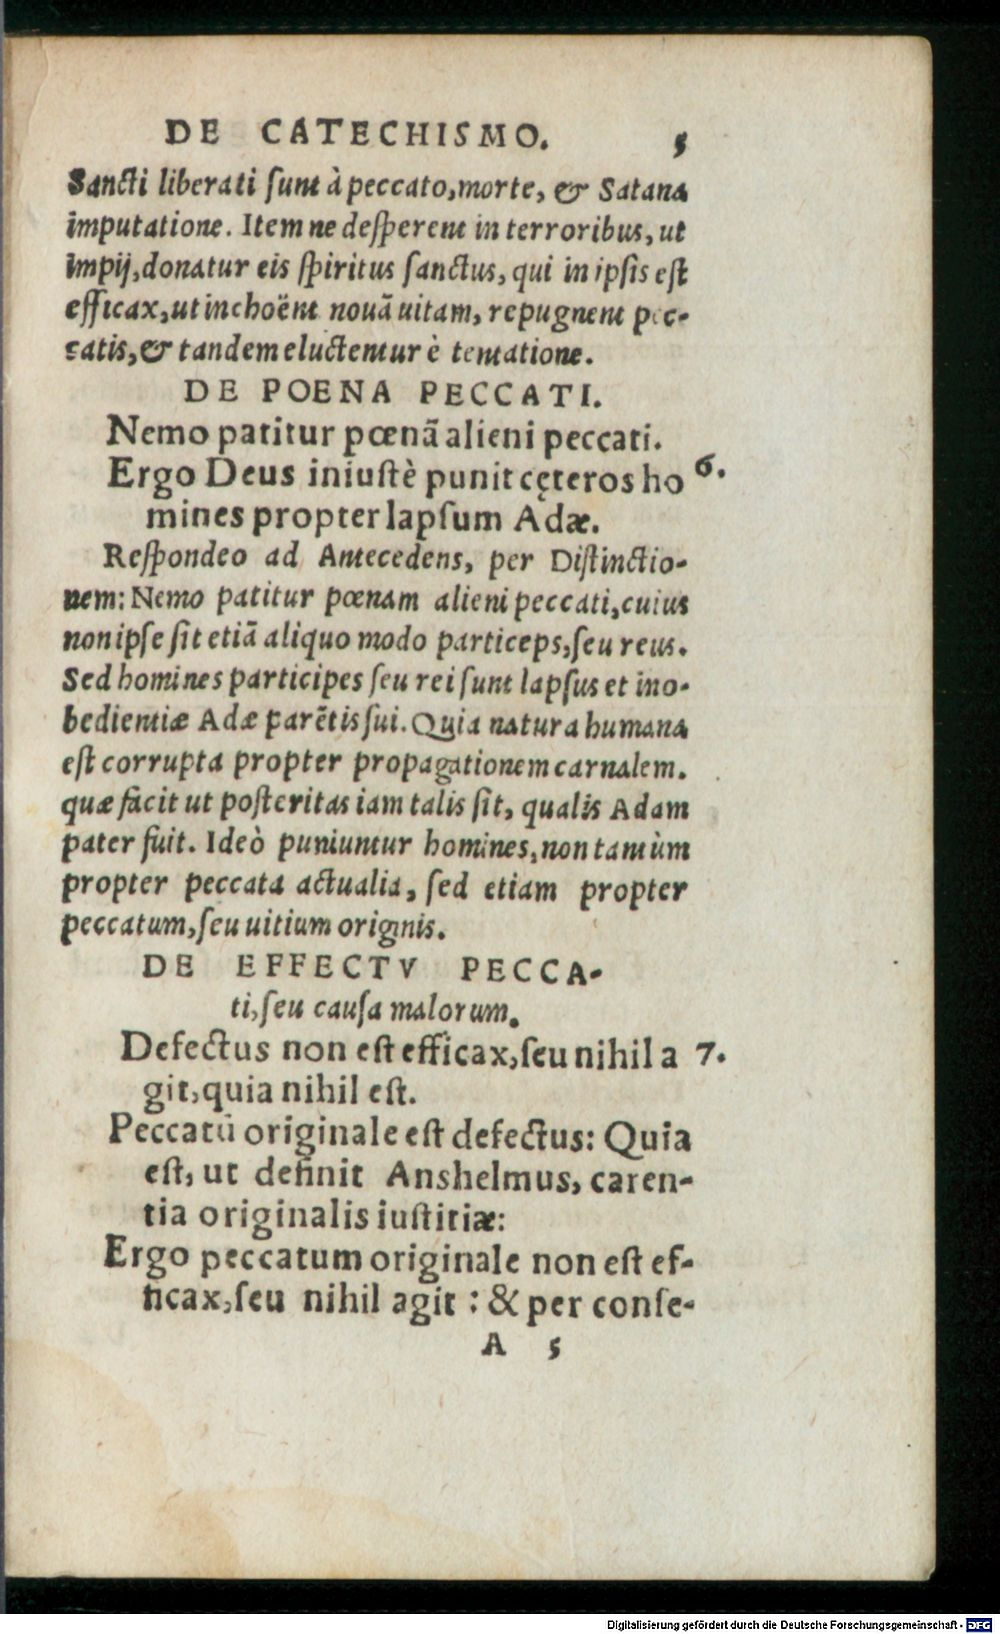 DE CATECHISMO. 5
Sancti liberati ſunt à peccato, morte, & Satana
imputatione. Item ne deſperent in terroribus, ut
impij, donatur eis ſpiritus ſanctus, qui in ipſis eſt
efficax, ut inchoënt nouā uitam, repugnent pec-
catis, & tandem eluctentur è tentatione.
DE POENA PECCATI.
Nemo patitur pœnā alieni peccati.
Ergo Deus iniuſtè punit cęteros ho 6.
mines propter lapſum Adæ.
Reſpondeo ad Antecedens, per Diſtinctio-
nem: Nemo patitur pœnam alieni peccati, cuius
non ipſe ſit etiā aliquo modo particeps, ſeu reus.
Sed homines participes ſeu rei ſunt lapſus et ino-
bedientiæ Adæ parētis ſui. Quia natura humana
eſt corrupta propter propagationem carnalem.
quæ facit ut poſteritas iam talis ſit, qualis Adam
pater fuit. Ideò puniuntur homines, non tantùm
propter peccata actualia, ſed etiam propter
peccatum, ſeu uitium originis.
DE EFFECTV PECCA-
ti, ſeu cauſa malorum.
Defectus non eſt efficax, ſeu nihil a 7.
git, quia nihil eſt.
Peccatū originale eſt defectus: Quia
eſt, ut definit Anshelmus, caren-
tia originalis iuſtitiæ:
Ergo peccatum originale non eſt ef-
ficax, ſeu nihil agit : & per conſe-
A 5
Digitalisierung gefördert durch die Deutsche Forschungsgemeinschaft - DFG